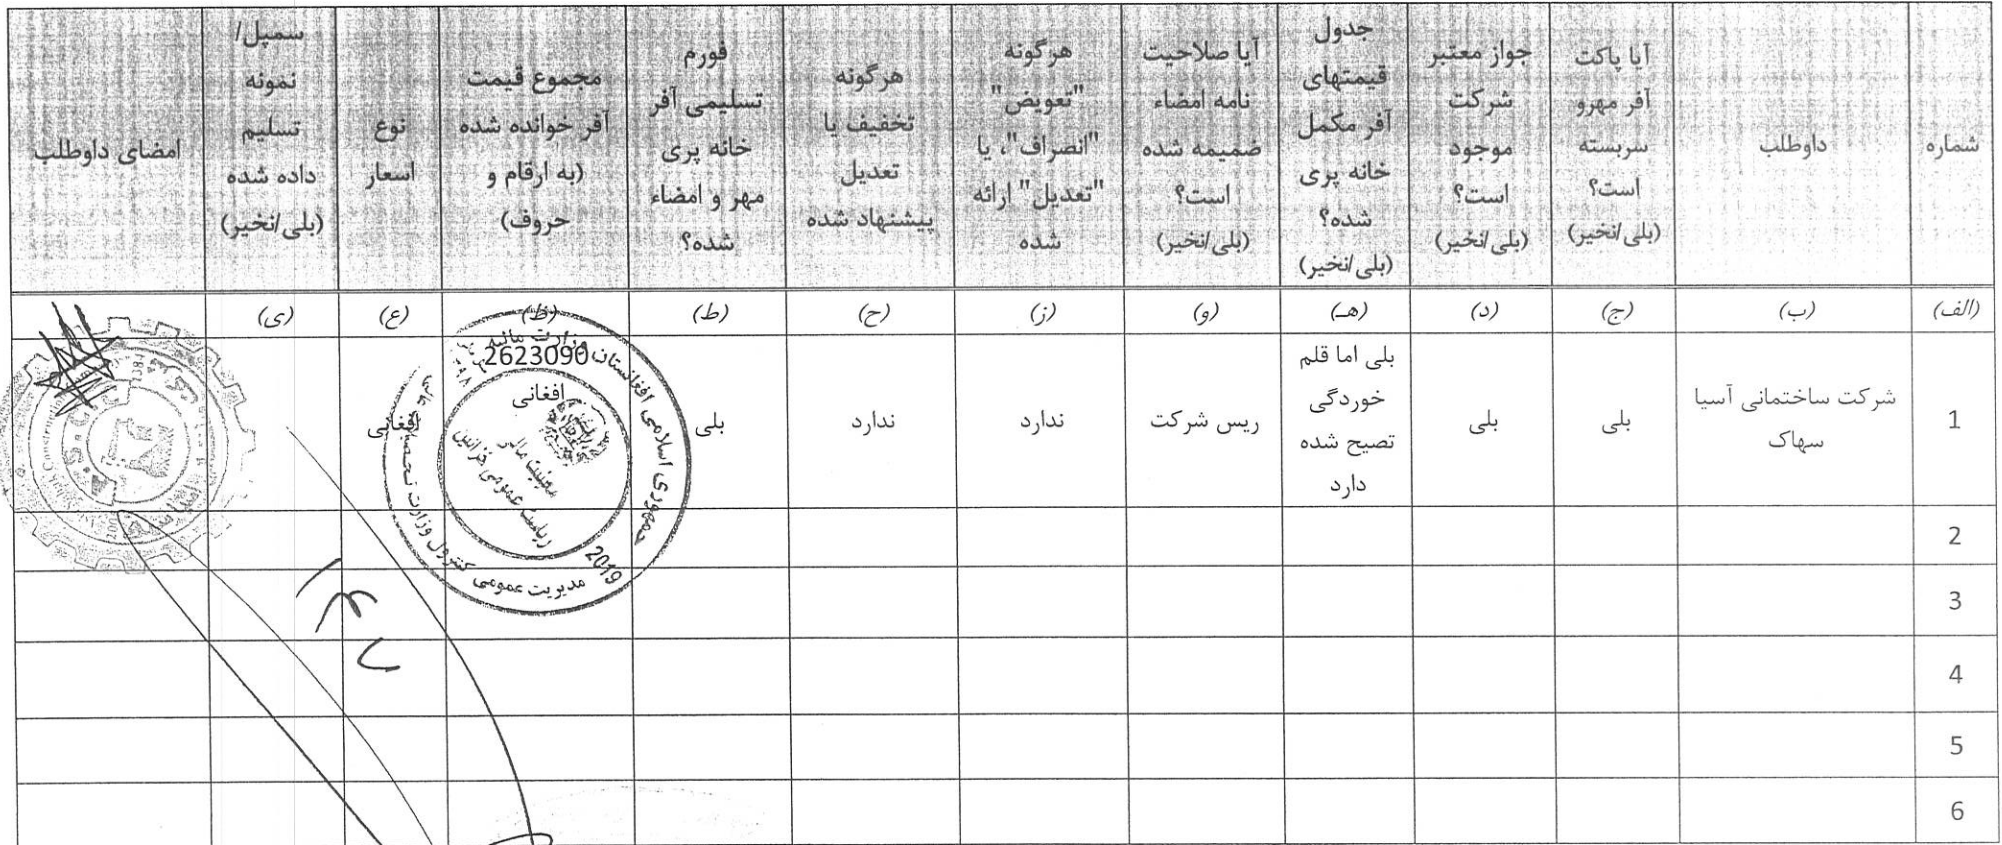 شماره
داوطلب
آیا پاکت
آفر مهرو
سربسته
است؟
(بلی/نخیر)
جواز معتبر
شرکت
موجود
است؟
(بلی/نخیر)
جدول
قیمتهای
آفر مکمل
خانه پری
شده؟
(بلی/نخیر)
آیا صلاحیت
نامه امضاء
ضمیمه شده
است؟
(بلی/نخیر)
هرگونه
"تعویض"
"انصراف"، یا
"تعدیل" ارائه
شده
هرگونه
تخفیف یا
تعدیل
پیشنهاد شده
فورم
تسلیمی آفر
خانه پری
مهر و امضاء
شده؟
مجموع قیمت
آفر خوانده شده
(به ارقام و
حروف)
نوع
اسعار
سمپل/
نمونه
تسلیم
داده شده
(بلی/نخیر)
امضای داوطلب
(الف)
(ب)
(ج)
(د)
(هـ)
(و)
(ز)
(ح)
(ط)
(ظ)
(ع)
(ی)
1
شرکت ساختمانی آسیا
سهاک
بلی
بلی
بلی اما قلم
خوردگی
تصیح شده
دارد
ریس شرکت
ندارد
ندارد
بلی
2623090
افغانی
افغانی
جمهوری اسلامی افغانستان وزارت مالیه
معینیت مالی
ریاست عمومی خزاین
مدیریت عمومی کنترول وزارت تحصیلات عالی
2019
2
3
4
5
6